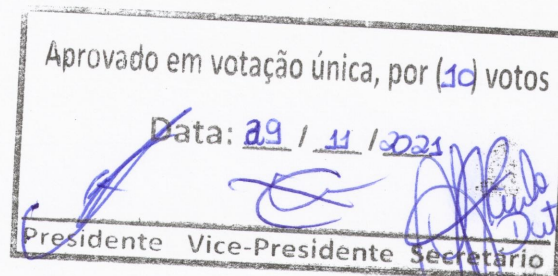 Aprovado em votação única, por (10) votos
Data: 29 / 11 / 2021
Presidente Vice-Presidente Secretário